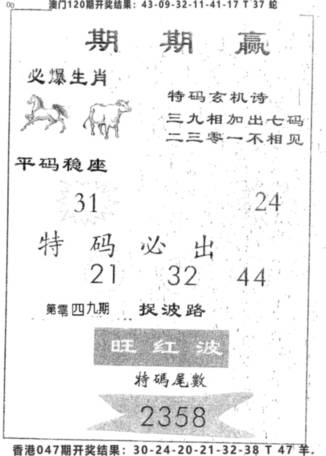 澳门120期开奖结果：43-09-32-11-41-17 T 37 蛇
期 期 赢
必爆生肖
特码玄机诗
三九相加出七码
二三零一不相见
平码稳座
31 24
特 码 必 出
21 32 44
第零四九期 捉波路
旺 红 波
特碼尾數
2358
香港047期开奖结果：30-24-20-21-32-38 T 47 羊.